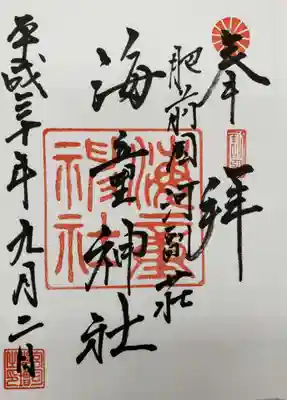 奉拝
肥前国河副荘
海童神社
平成三十年九月二日
海童神社